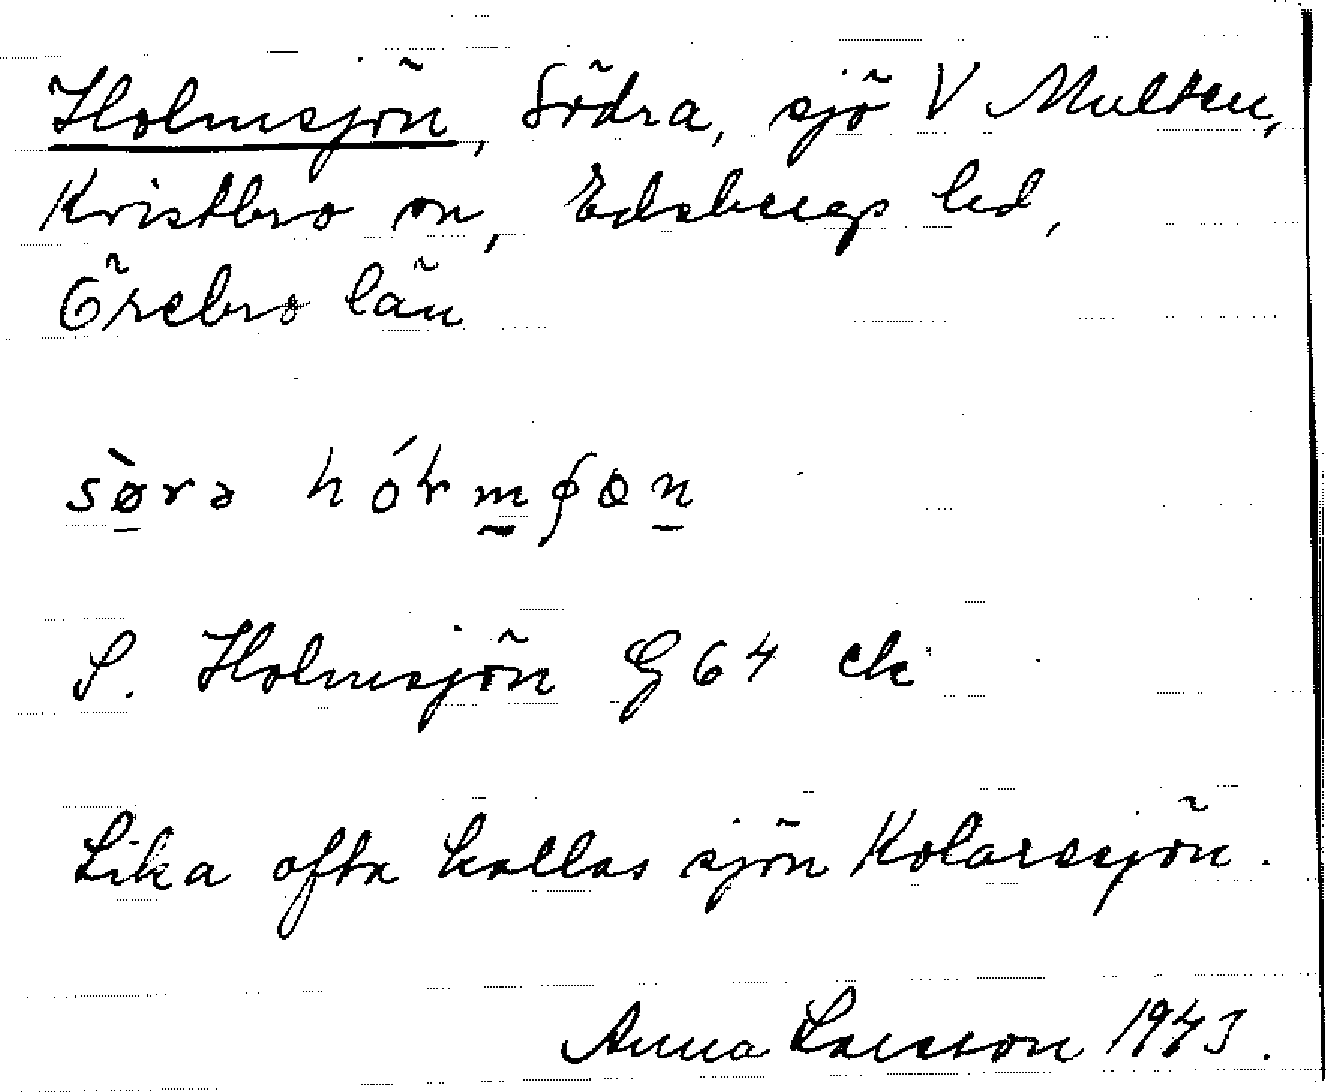 Holmsjön, Södra, sjö V Multen,
Kristbro sn, Edsbergs hd,
Örebro län
sø̀rə hóƚm̠ʃœn̠
S. Holmsjön G64 ek
Lika ofta kallas sjön Kolarsjön.
Anna Larsson 1943.